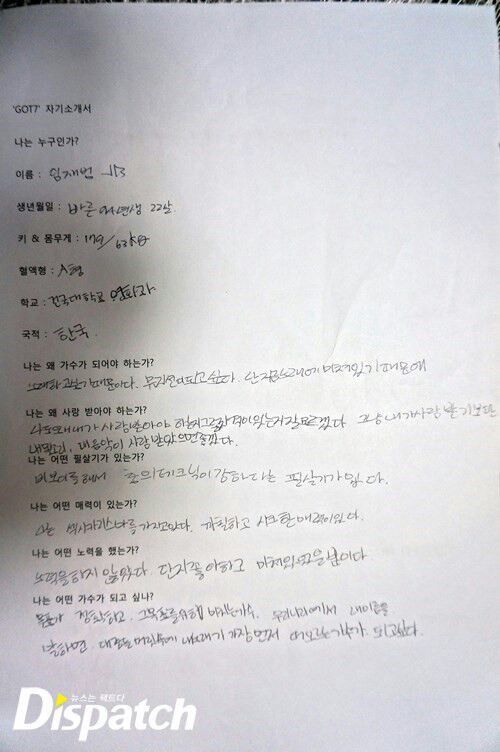 'GOT7' 자기소개서
나는 누구인가?
이름 : 임재범 JB
생년월일 : 바른 94년생 22살
키 & 몸무게 : 179/63kg
혈액형 : A형
학교 : 건국대학교 영화과
국적 : 한국.
나는 왜 가수가 되어야 하는가?
노래하고싶기때문이다. 뮤지션이되고싶다. 난 지금노래에 미쳐있기때문에
나는 왜 사랑 받아야 하는가?
나도왜내가 사랑받아야 하는지 자격이있는지잘모르겠다 그냥 내가사랑받기보단
내목소리, 내음악이 사랑받았으면좋겠다.
나는 어떤 필살기가 있는가?
비보이를해서 춤의테크닉이강하다는 필살기가있다.
나는 어떤 매력이 있는가?
나는 섹시카리스마를가지고있다. 까칠하고 시크한매력이있다.
나는 어떤 노력을 했는가?
노력을하지 않았다. 단지좋아하고 미쳐있었을뿐이다
나는 어떤 가수가 되고 싶나?
목표가 뚜렷하고. 그목표를위해 미치는가수. 우리나라에서 내이름을
말하면. 대중들머릿속에 내노래가 가장먼저 떠오르는가수가 되고싶다.
뉴스는 팩트다
Dispatch